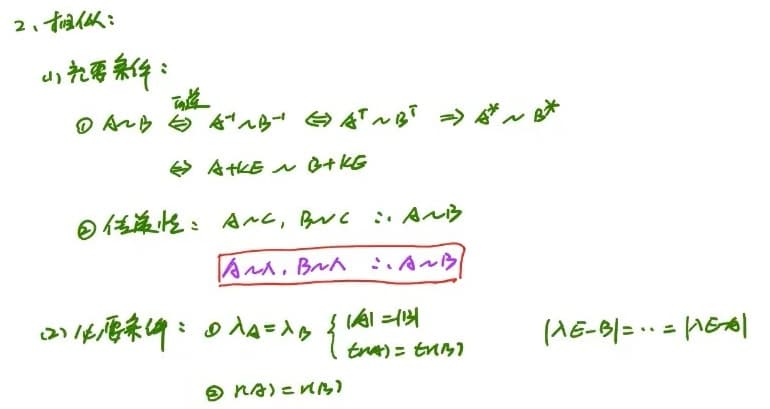 2、相似:
(1) 充要条件:
① A~B ⇔(可逆) A⁻¹~B⁻¹ ⇔ Aᵀ~Bᵀ ⇒ A*~B*
⇔ A+kE ~ B+kE
② 传递性: A~C, B~C ∴ A~B
A~Λ, B~Λ ∴ A~B
(2) 必要条件: ① λA=λB { |A|=|B| |λE-B|=‥=|λE-A|
tr(A)=tr(B)
② r(A)=r(B)